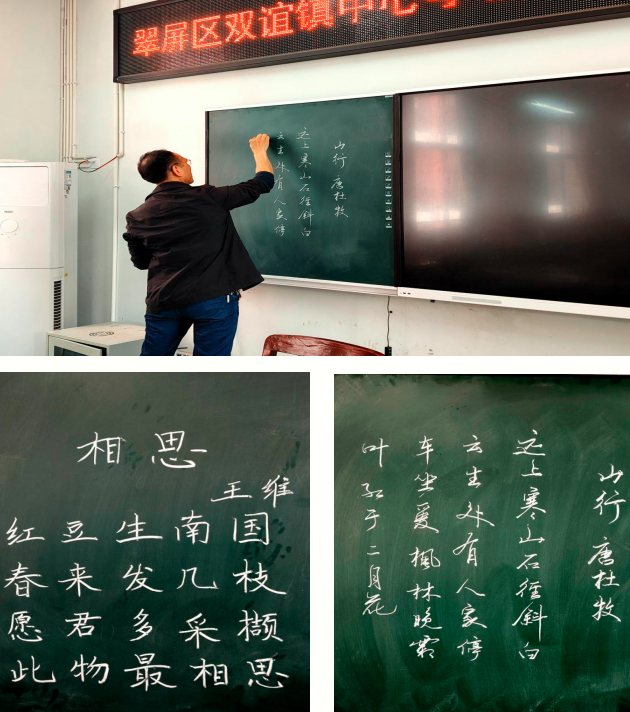 翠屏区双谊镇中心
山行 唐杜牧
远上寒山石徑斜白
云生处有人家停
相思
王维
红豆生南国
春来发几枝
愿君多采撷
此物最相思
山行 唐杜牧
远上寒山石徑斜白
云生处有人家停
车坐爱楓林晚霜
叶红于二月花